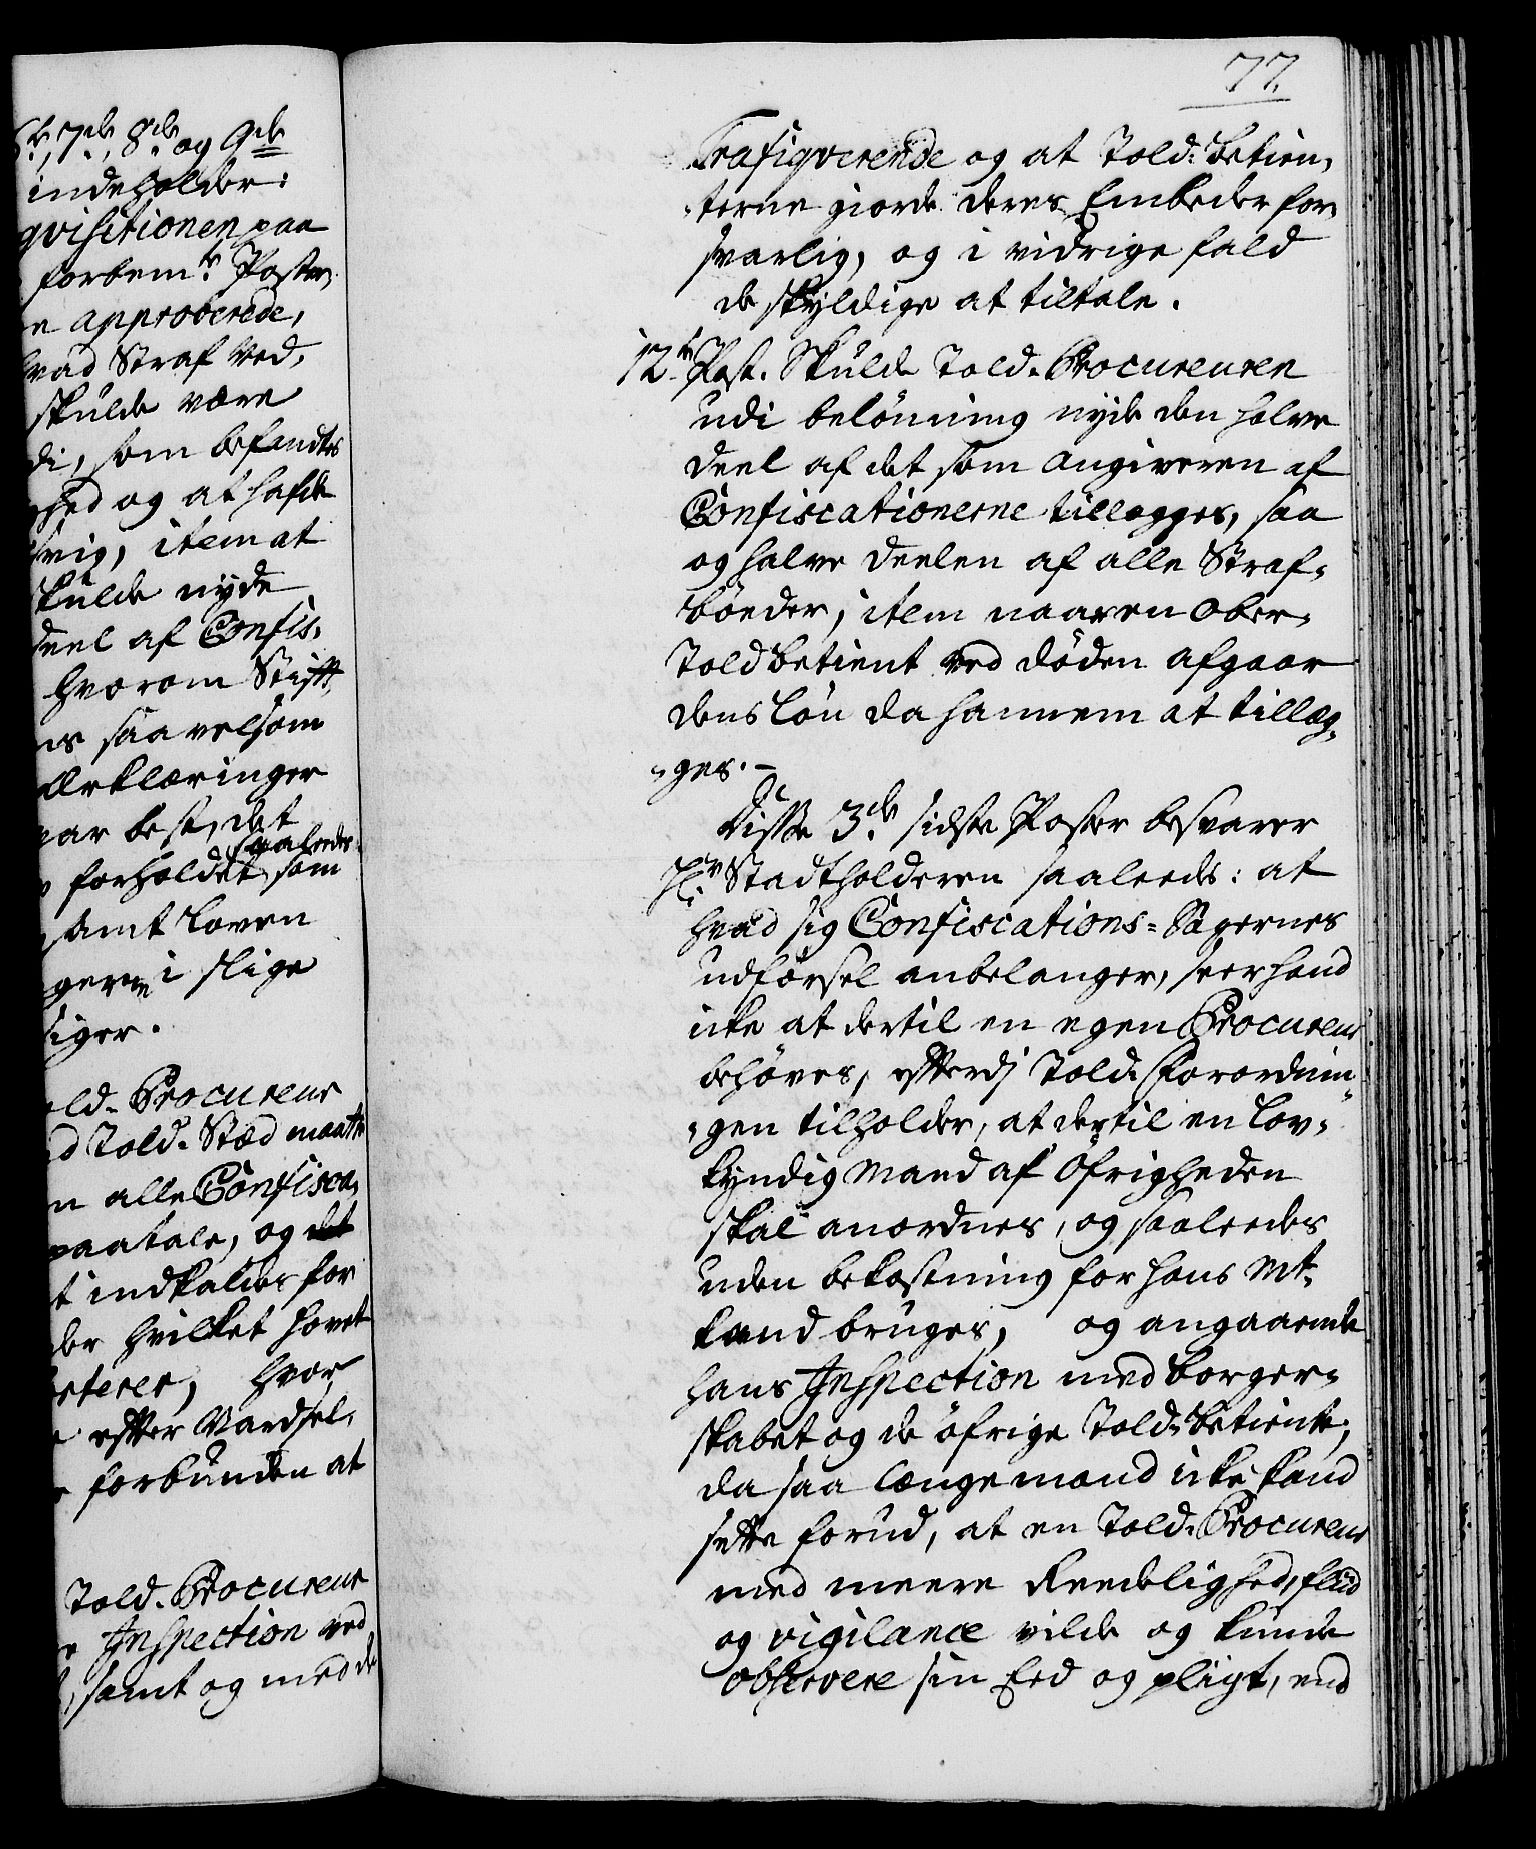 6te, 7de, 8de og 9de
indeholder:
qvisitionen paa
forbemte Poster
e approberede,
hvad Straf ved,
skulde være
di, som befandtes
hed og at hafde
svig, item at
skulde nyde
deel af Confis,
hvorom Stift,
ns saavelsom
Erklæringer
var best, det
saaleedes
forholdet som
samt loven
gerne i slige
siger.
old. Procureur
d Told. Stæd maatte
n alle Confisca,
paatale, og det
t indkalder for
der hvilket hovet
rterer, hvor
efter Vardsel,
forbunden at
Told. Procureur
Inspection ved
, samt og med de
77.
Trafiqverende og at Told. betien,
,terne giorde deres Embeder for,
svarlig, og i vidrige fald
de skyldige at tiltale.
12te Post. Skulde Told. Procureuren
udi belönning nyde den halve
deel af det som Angiveren af
Confiscationerne tillegges, saa
og halve deelen af alle Straf,
böeder, item naar en Ober,
Toldbetient ved döden afgaar
dens lön da hannem at tillæg,
,ges. –
Disse 3de sidste Poster besvarer
Hr. Stadtholderen saaleeds: at
hvad sig Confiscations-Sagernes
udförsel anbelanger, seer hand
icke at dertil en egen Procureur
behöves, efterdj Told. Forordnin,
,gen tilholder, at dertil en lov,
kyndig Mand af Öfrigheden
skal anordnes, og saaleedes
uden bekostning for hans Mt.
kand bruges, og angaaende
hans Inspection med borger,
skabet og de öfrige Told. betiente,
da saa længe mand icke kand
sette forud, at en Told. Procureur
med meere Reedelighed, flid
og vigilance vilde og kunde
observere sin Eed og pligt, end